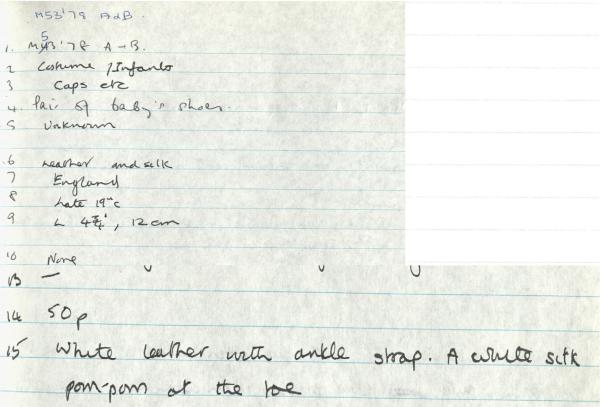 M53'78 A&B.
1. M53'78 A-B.
2 Costume / Infants
3 Caps etc
4. Pair of baby's shoes.
5 Unknown
6 Leather and silk
7 England
8 Late 19thc
9 L 4¾", 12cm
10 None
13 —
14 50p
15 White leather with ankle strap. A white silk
pom-pom at the toe